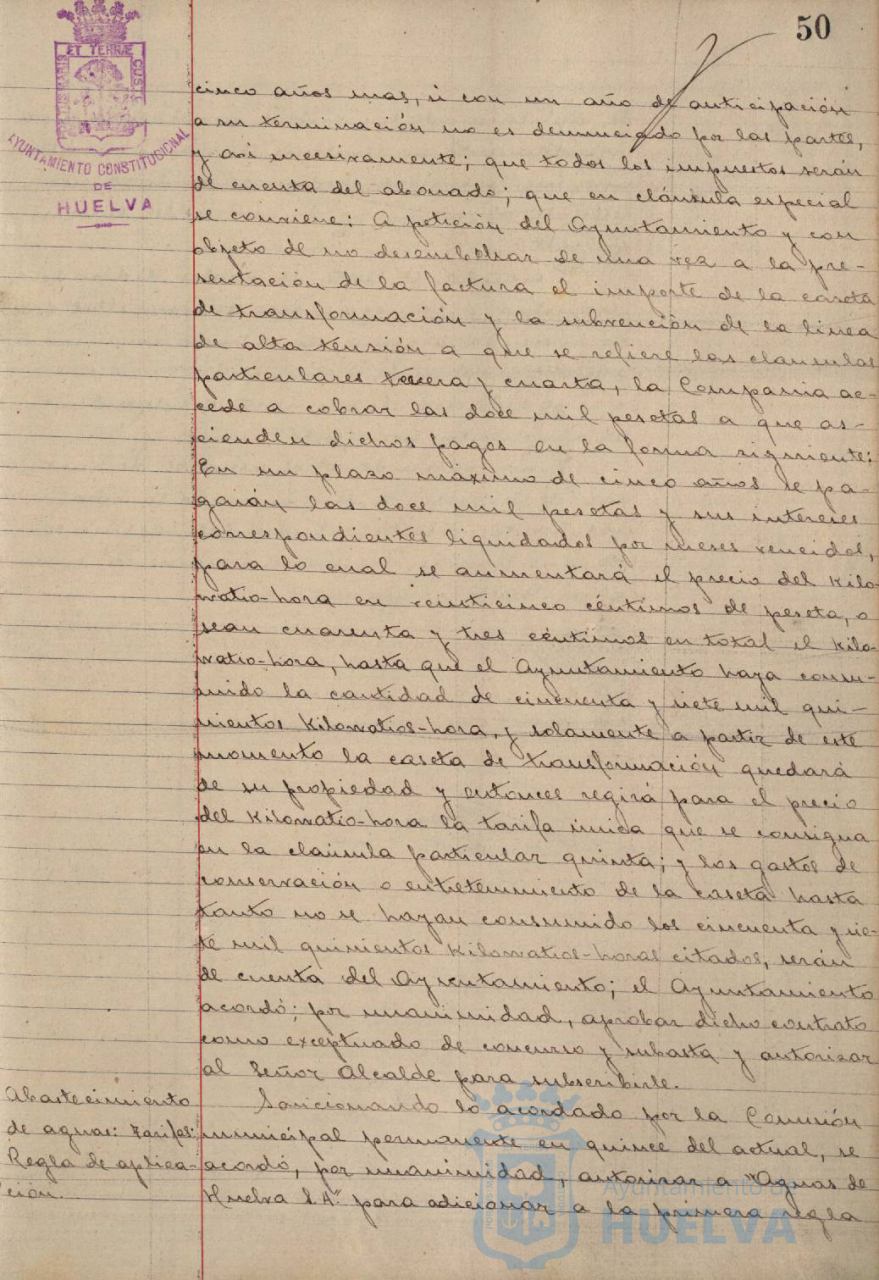 50
ET TERRÆ
CUSTO
PORTUS MARIS
AYUNTAMIENTO CONSTITUCIONAL
DE
HUELVA
cinco años mas, si con un año de anticipación
a su terminación no es denunciado por las partes,
y así sucesivamente; que todos los impuestos serán
de cuenta del abonado; que en cláusula especial
se conviene: A petición del Ayuntamiento y con
objeto de no desembolsar de una vez a la pre-
sentación de la factura el importe de la caseta
de transformación y la subvención de la linea
de alta tensión a que se refiere las clausulas
particulares tercera y cuarta, la Compania ac-
cede a cobrar las doce mil pesetas a que as-
cienden dichos pagos en la forma siguiente:
En un plazo máximo de cinco años se pa-
garán las doce mil pesetas y sus intereses
correspondientes liquidados por meses vencidos,
para lo cual se aumentará el precio del kilo-
watio-hora en veinticinco céntimos de peseta, o
sean cuarenta y tres céntimos en total el kilo-
watio-hora, hasta que el Ayuntamiento haya consu-
mido la cantidad de cincuenta y siete mil qui-
nientos kilowatios-hora, y solamente a partir de este
momento la caseta de transformación quedará
de su propiedad y entonces regirá para el precio
del kilowatio-hora la tarifa unica que se consigna
en la claúsula particular quinta; y los gastos de
conservación o entretenimiento de la caseta hasta
tanto no se hayan consumido los cincuenta y sie-
te mil quinientos kilowatios-horas citados, serán
de cuenta del Ayuntamiento; el Ayuntamiento
acordó; por unanimidad, aprobar dicho contrato
como exceptuado de concurso y subasta y autorizar
al Señor Alcalde para subscribirle.
Abastecimiento
de aguas: Tarifas:
Regla de aplica-
ción.
Sancionando lo acordado por la Comisión
municipal permanente en quince del actual, se
acordó, por unanimidad, autorizar a "Aguas de
Huelva S.A." para adicionar a la primera regla
Ayuntamiento de
HUELVA